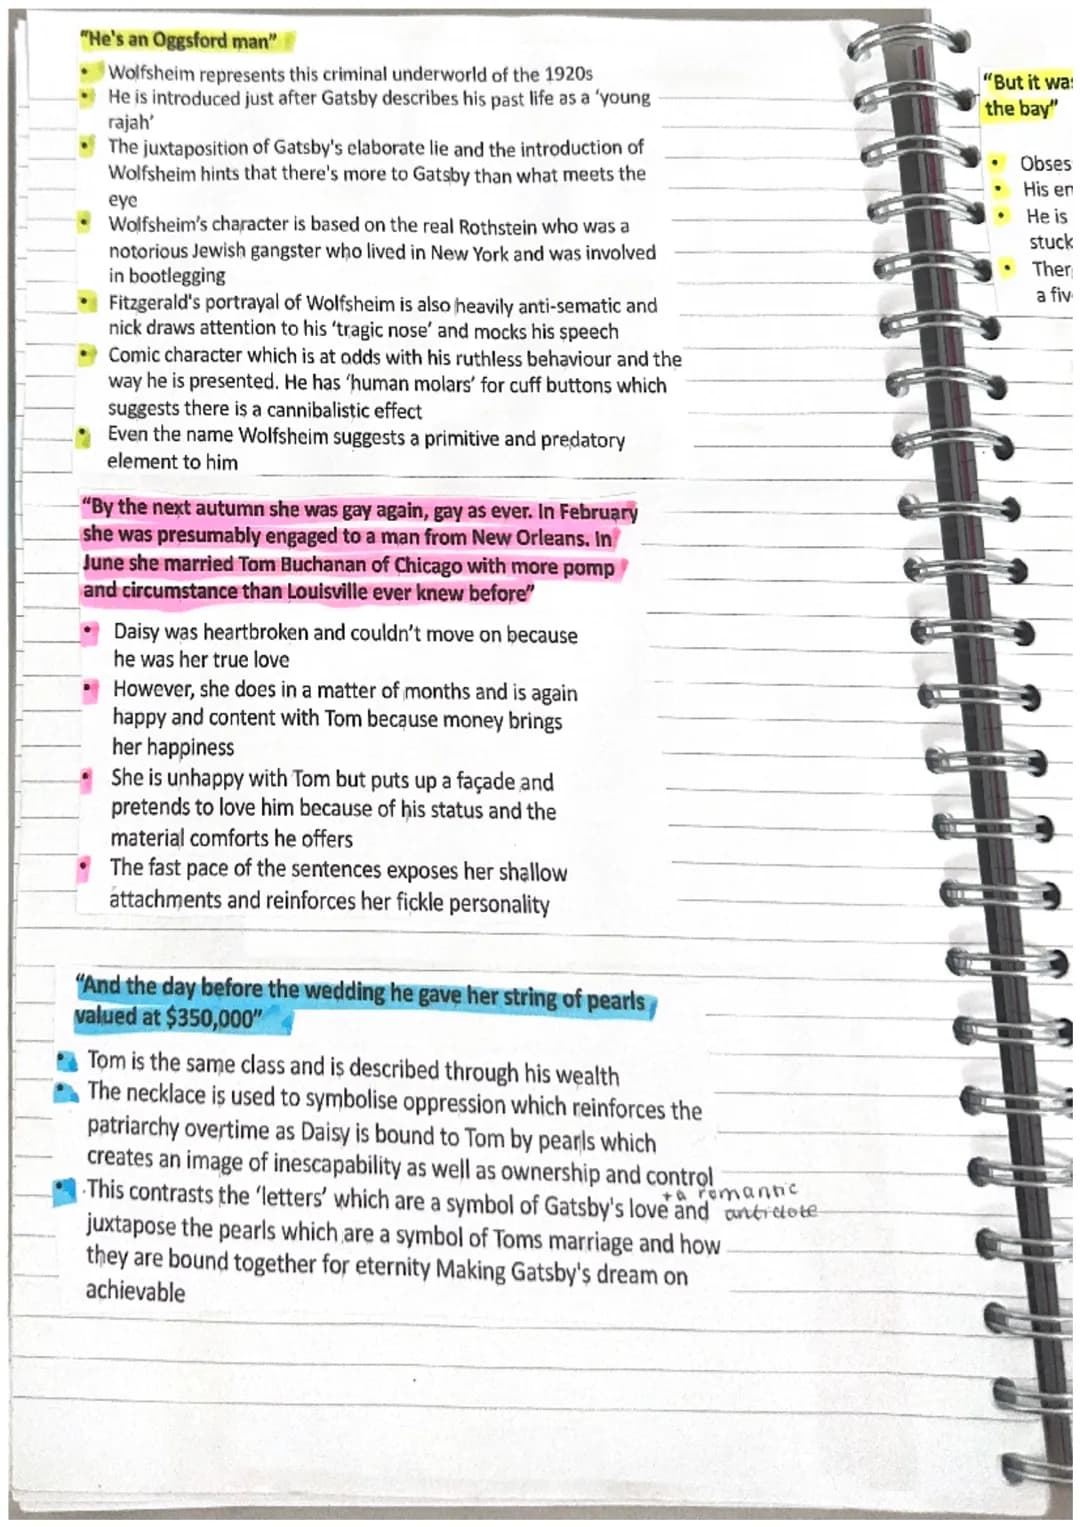 "He's an Oggsford man"
• Wolfsheim represents this criminal underworld of the 1920s
• He is introduced just after Gatsby describes his past life as a 'young
rajah'
• The juxtaposition of Gatsby's elaborate lie and the introduction of
Wolfsheim hints that there's more to Gatsby than what meets the
eye
• Wolfsheim's character is based on the real Rothstein who was a
notorious Jewish gangster who lived in New York and was involved
in bootlegging
• Fitzgerald's portrayal of Wolfsheim is also heavily anti-sematic and
nick draws attention to his 'tragic nose' and mocks his speech
• Comic character which is at odds with his ruthless behaviour and the
way he is presented. He has 'human molars' for cuff buttons which
suggests there is a cannibalistic effect
• Even the name Wolfsheim suggests a primitive and predatory
element to him
"By the next autumn she was gay again, gay as ever. In February
she was presumably engaged to a man from New Orleans. In
June she married Tom Buchanan of Chicago with more pomp
and circumstance than Louisville ever knew before"
• Daisy was heartbroken and couldn't move on because
he was her true love
• However, she does in a matter of months and is again
happy and content with Tom because money brings
her happiness
• She is unhappy with Tom but puts up a façade and
pretends to love him because of his status and the
material comforts he offers
• The fast pace of the sentences exposes her shallow
attachments and reinforces her fickle personality
"And the day before the wedding he gave her string of pearls
valued at $350,000"
• Tom is the same class and is described through his wealth
• The necklace is used to symbolise oppression which reinforces the
patriarchy overtime as Daisy is bound to Tom by pearls which
creates an image of inescapability as well as ownership and control
+ a romantic
• This contrasts the 'letters' which are a symbol of Gatsby's love and antidote
juxtapose the pearls which are a symbol of Toms marriage and how
they are bound together for eternity Making Gatsby's dream on
achievable
"But it was
the bay"
• Obses
• His en
• He is
stuck
• Ther
a fiv